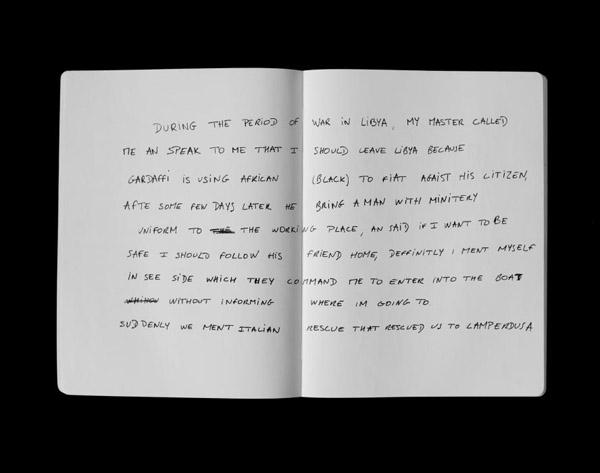 DURING THE PERIOD OF WAR IN LIBYA, MY MASTER CALLED
ME AN SPEAK TO ME THAT I SHOULD LEAVE LIBYA BECAUSE
GARDAFFI IS USING AFRICAN (BLACK) TO FIAT AGAIST HIS CITIZEN,
AFTE SOME FEW DAYS LATER HE BRING A MAN WITH MINITERY
UNIFORM TO THE WORKING PLACE, AN SAID IF I WANT TO BE
SAFE I SHOULD FOLLOW HIS FRIEND HOME, DEFFINITLY I MENT MYSELF
IN SEE SIDE WHICH THEY COMMAND ME TO ENTER INTO THE BOAT
WITHOUT INFORMING WHERE IM GOING TO
SUDDENLY WE MENT ITALIAN RESCUE THAT RESCUED US TO LAMPERDUSA